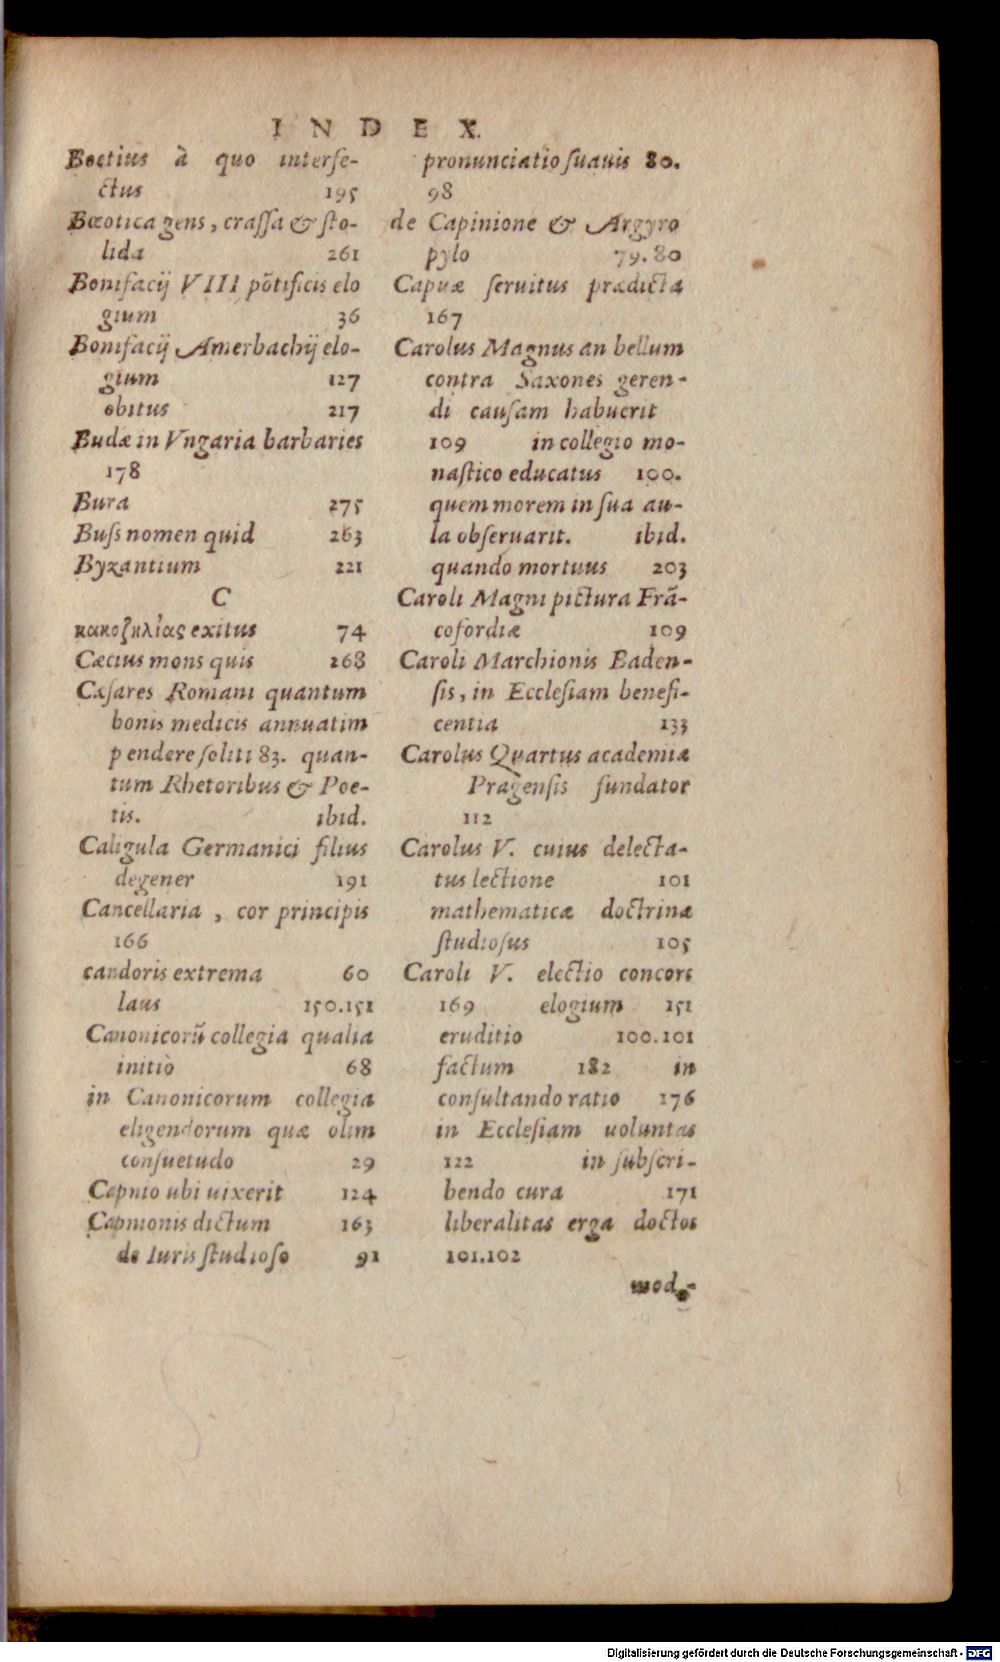 INDEX.
Boetius à quo interfe-
ctus 195
Bœotica gens, craſſa & ſto-
lida 261
Bonifacij VIII põtificis elo
gium 36
Bonifacij Amerbachij elo-
gium 127
obitus 217
Budæ in Vngaria barbaries
178
Bura 275
Buſs nomen quid 263
Byzantium 221
C
κακοζηλίας exitus 74
Cæcius mons quis 268
Cæſares Romani quantum
bonis medicis annuatim
pendere ſoliti 83. quan-
tum Rhetoribus & Poe-
tis. ibid.
Caligula Germanici filius
degener 191
Cancellaria, cor principis
166
candoris extrema 60
laus 150.151
Canonicorũ collegia qualia
initiò 68
in Canonicorum collegia
eligendorum quæ olim
conſuetudo 29
Capnio ubi uixerit 124
Capnionis dictum 163
de Iuris ſtudioſo 91
pronunciatio ſuauis 80.
98
de Capinione & Argyro
pylo 79.80
Capuæ ſeruitus prædicta
167
Carolus Magnus an bellum
contra Saxones geren-
di cauſam habuerit
109 in collegio mo-
naſtico educatus 100.
quem morem in ſua au-
la obſeruarit. ibid.
quando mortuus 203
Caroli Magni pictura Frã-
cofordiæ 109
Caroli Marchionis Baden-
ſis, in Eccleſiam benefi-
centia 133
Carolus Quartus academiæ
Pragenſis fundator
112
Carolus V. cuius delecta-
tus lectione 101
mathematicæ doctrinæ
ſtudioſus 105
Caroli V. electio concors
169 elogium 151
eruditio 100.101
factum 182 in
conſultando ratio 176
in Eccleſiam uoluntas
122 in ſubſcri-
bendo cura 171
liberalitas erga doctos
101.102
mode-
Digitalisierung gefördert durch die Deutsche Forschungsgemeinschaft - DFG